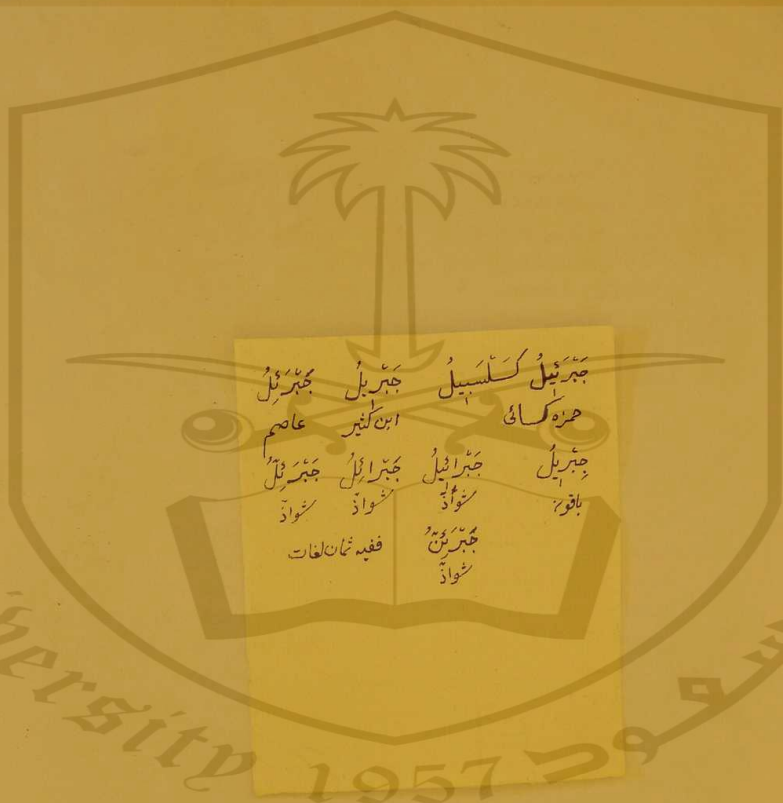 جَبْرَئِيلُ كَسَلْسَبِيلُ جَبْرِيلُ جَبْرَئِلُ
حمزه كسائى ابن كثير عاصم
جِبْرِيلُ جَبْرائيلُ جَبْرائِلُ جَبْرَئِلُّ
شواذّ شواذّ شواذّ
جَبْرَئِنُّ ففيه ثمان لغات
شواذّ
versity 1957 سعود